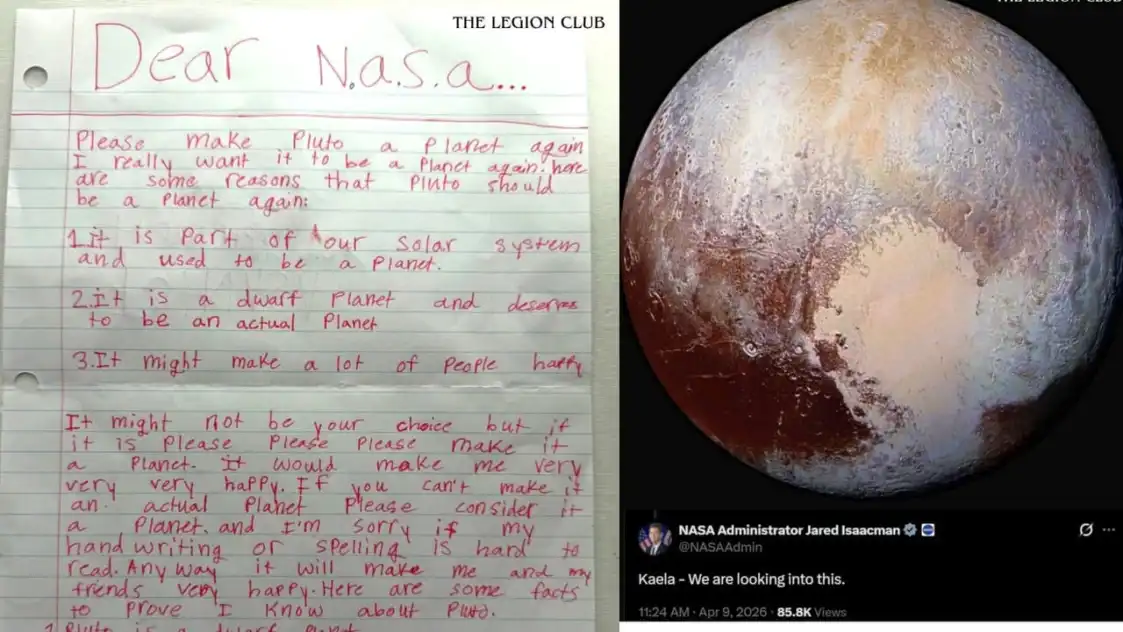 THE LEGION CLUB
Dear N.a.s.a...
Please make Pluto a Planet again
I really want it to be a Planet again. here
are some reasons that Pluto should
be a Planet again:
1.it is part of our solar system
and used to be a Planet.
2.It is a dwarf Planet and deserves
to be an actual Planet
3.It might make a lot of people happy
It might not be your choice but if
it is Please Please Please make it
a Planet. It would make me very
very very happy. If you can't make it
an actual Planet Please consider it
a Planet. and I'm sorry if my
hand writing or spelling is hard to
read. Any way it will make me and my
friends very happy. Here are some facts
to prove I know about Pluto.
1. Pluto is a dwarf Planet
THE LEGION CLUB
NASA Administrator Jared Isaacman
@NASAAdmin
Kaela - We are looking into this.
11:24 AM · Apr 9, 2026 · 85.8K Views